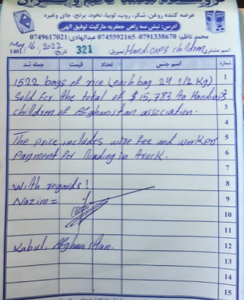 عرضه کننده روغن، شکر، روب، لوبیا، نخود، برنج، چای وغیره
آدرس:
0749617021 عبدالهادی: 0745592165 - 0791338670
May, 16, 2022 321 اسم مشتری Handicaps children
1401 / / تاریخ
شماره اسم جنس تعداد قیمت جمله شد
1 1522 bags of rice (each bag 24 1/2 Kg)
2 Sold for the total of $ 15,783 to Handicap
3 children of Afghanistan association.
4
5 The price includes wire Fee and workers
6 Payment for loading in truck.
7
8 with regards!
9 Nazim=
10
11
12 Kabul, Afghanistan.
13
14
15